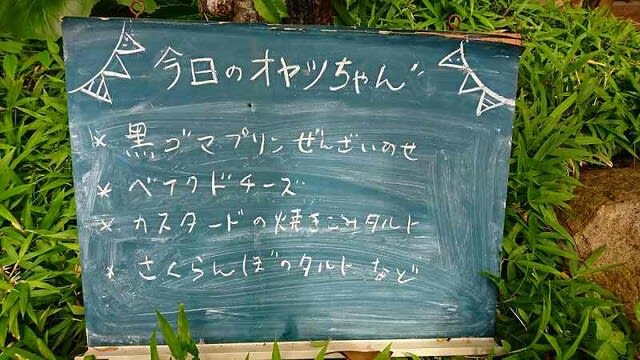 今日のオヤツちゃん〃
* 黒ゴマプリンぜんざいのせ
* ベイクドチーズ
* カスタードの焼きこみタルト
* さくらんぼのタルトなど